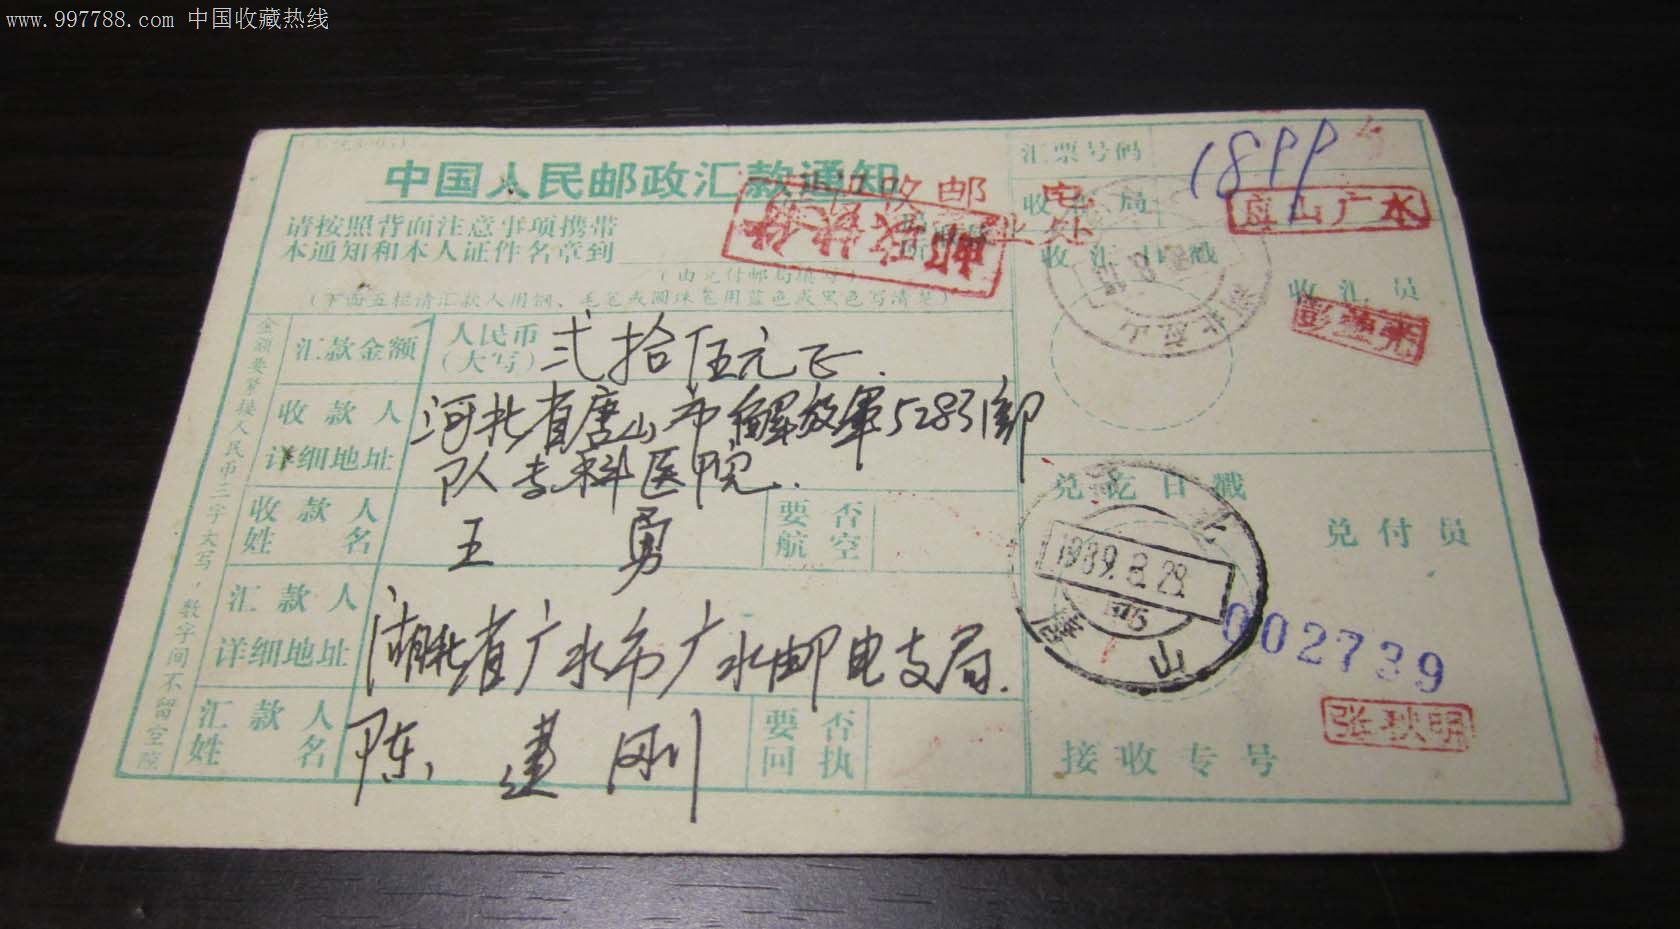 www.997788.com 中国收藏热线
中国人民邮政汇款通知
请按照背面注意事项携带
本通知和本人证件名章到
(由兑付邮局填写)
(下面五栏请汇款人用钢、毛笔或圆珠笔用蓝色或黑色写清楚)
金额要紧接人民币二字大写，数字间不留空隙
汇款金额
人民币
(大写)
弍拾伍元正.
收款人
详细地址
河北省唐山市解放军52831部
队专科医院.
收款人
姓名
王勇
要否
航空
汇款人
详细地址
湖北省广水市广水邮电支局.
汇款人
姓名
陈建刚
要否
回执
汇票号码
1899
收汇局
应山广水
收汇日戳
收汇员
兑讫日戳
河北
1989.8.28
唐山
兑付员
002739
张秋明
接收专号